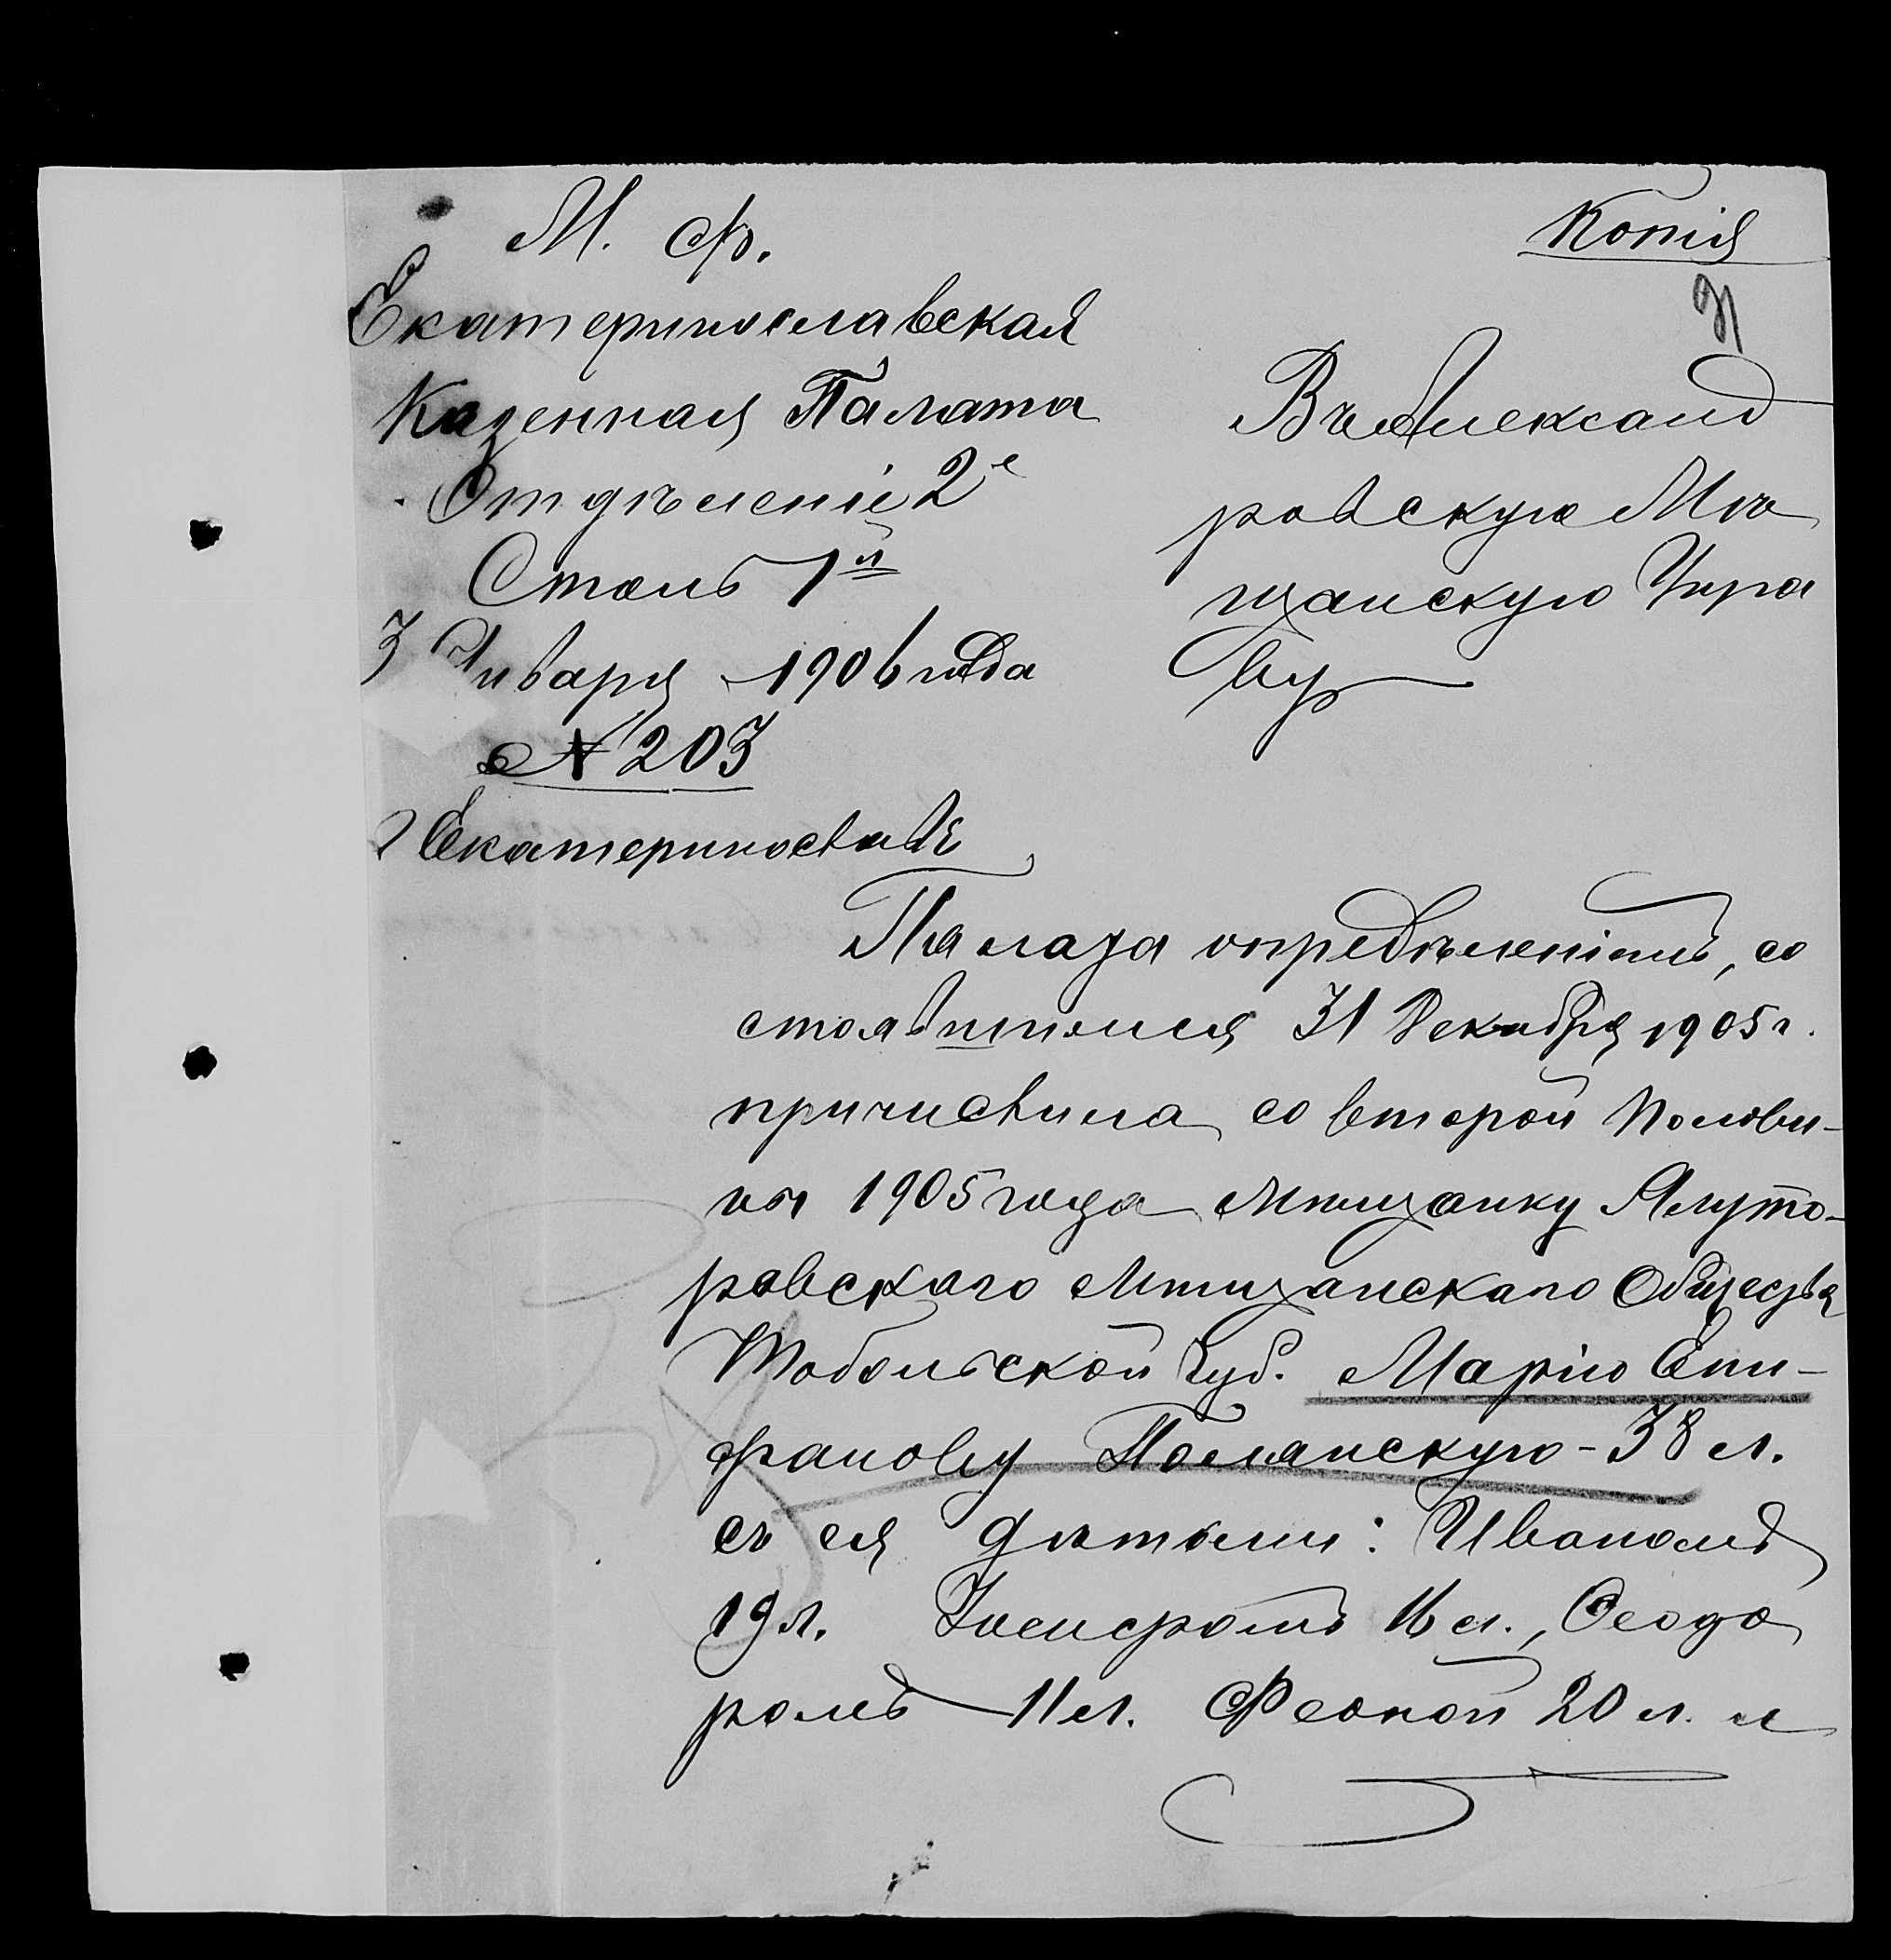 М. Ф.
Копія
Екатеринославская
Казенная Палата
Отдѣленіе 2е
Столъ 1й
3 Января 1906 года
№ 203
г Екатеринославъ
Въ Александ
ровскую Мѣ
щанскую Упра
ву
Палата опредѣленіемъ, со
стоявшимся 31 Декабря 1905 г.
причислила со второй полови-
ны 1905 года мѣщанку Ялуто-
ровскаго Мѣщанскаго Общества
Тобольской губ. Марію Епи-
фанову Полянскую - 38 л.
съ ея дѣтьми: Иваномъ
19 л. 16 л., Ѳеодо
ромъ 11 л. Феоной 20 л. и